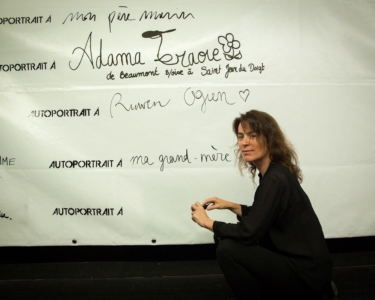 AUTOPORTRAIT À mon père
AUTOPORTRAIT À Adama Traoré
de Beaumont s/oise à Saint Jean du Doigt
AUTOPORTRAIT À Ruwen Ogien ♡
AUTOPORTRAIT À ma grand-mère
AUTOPORTRAIT À